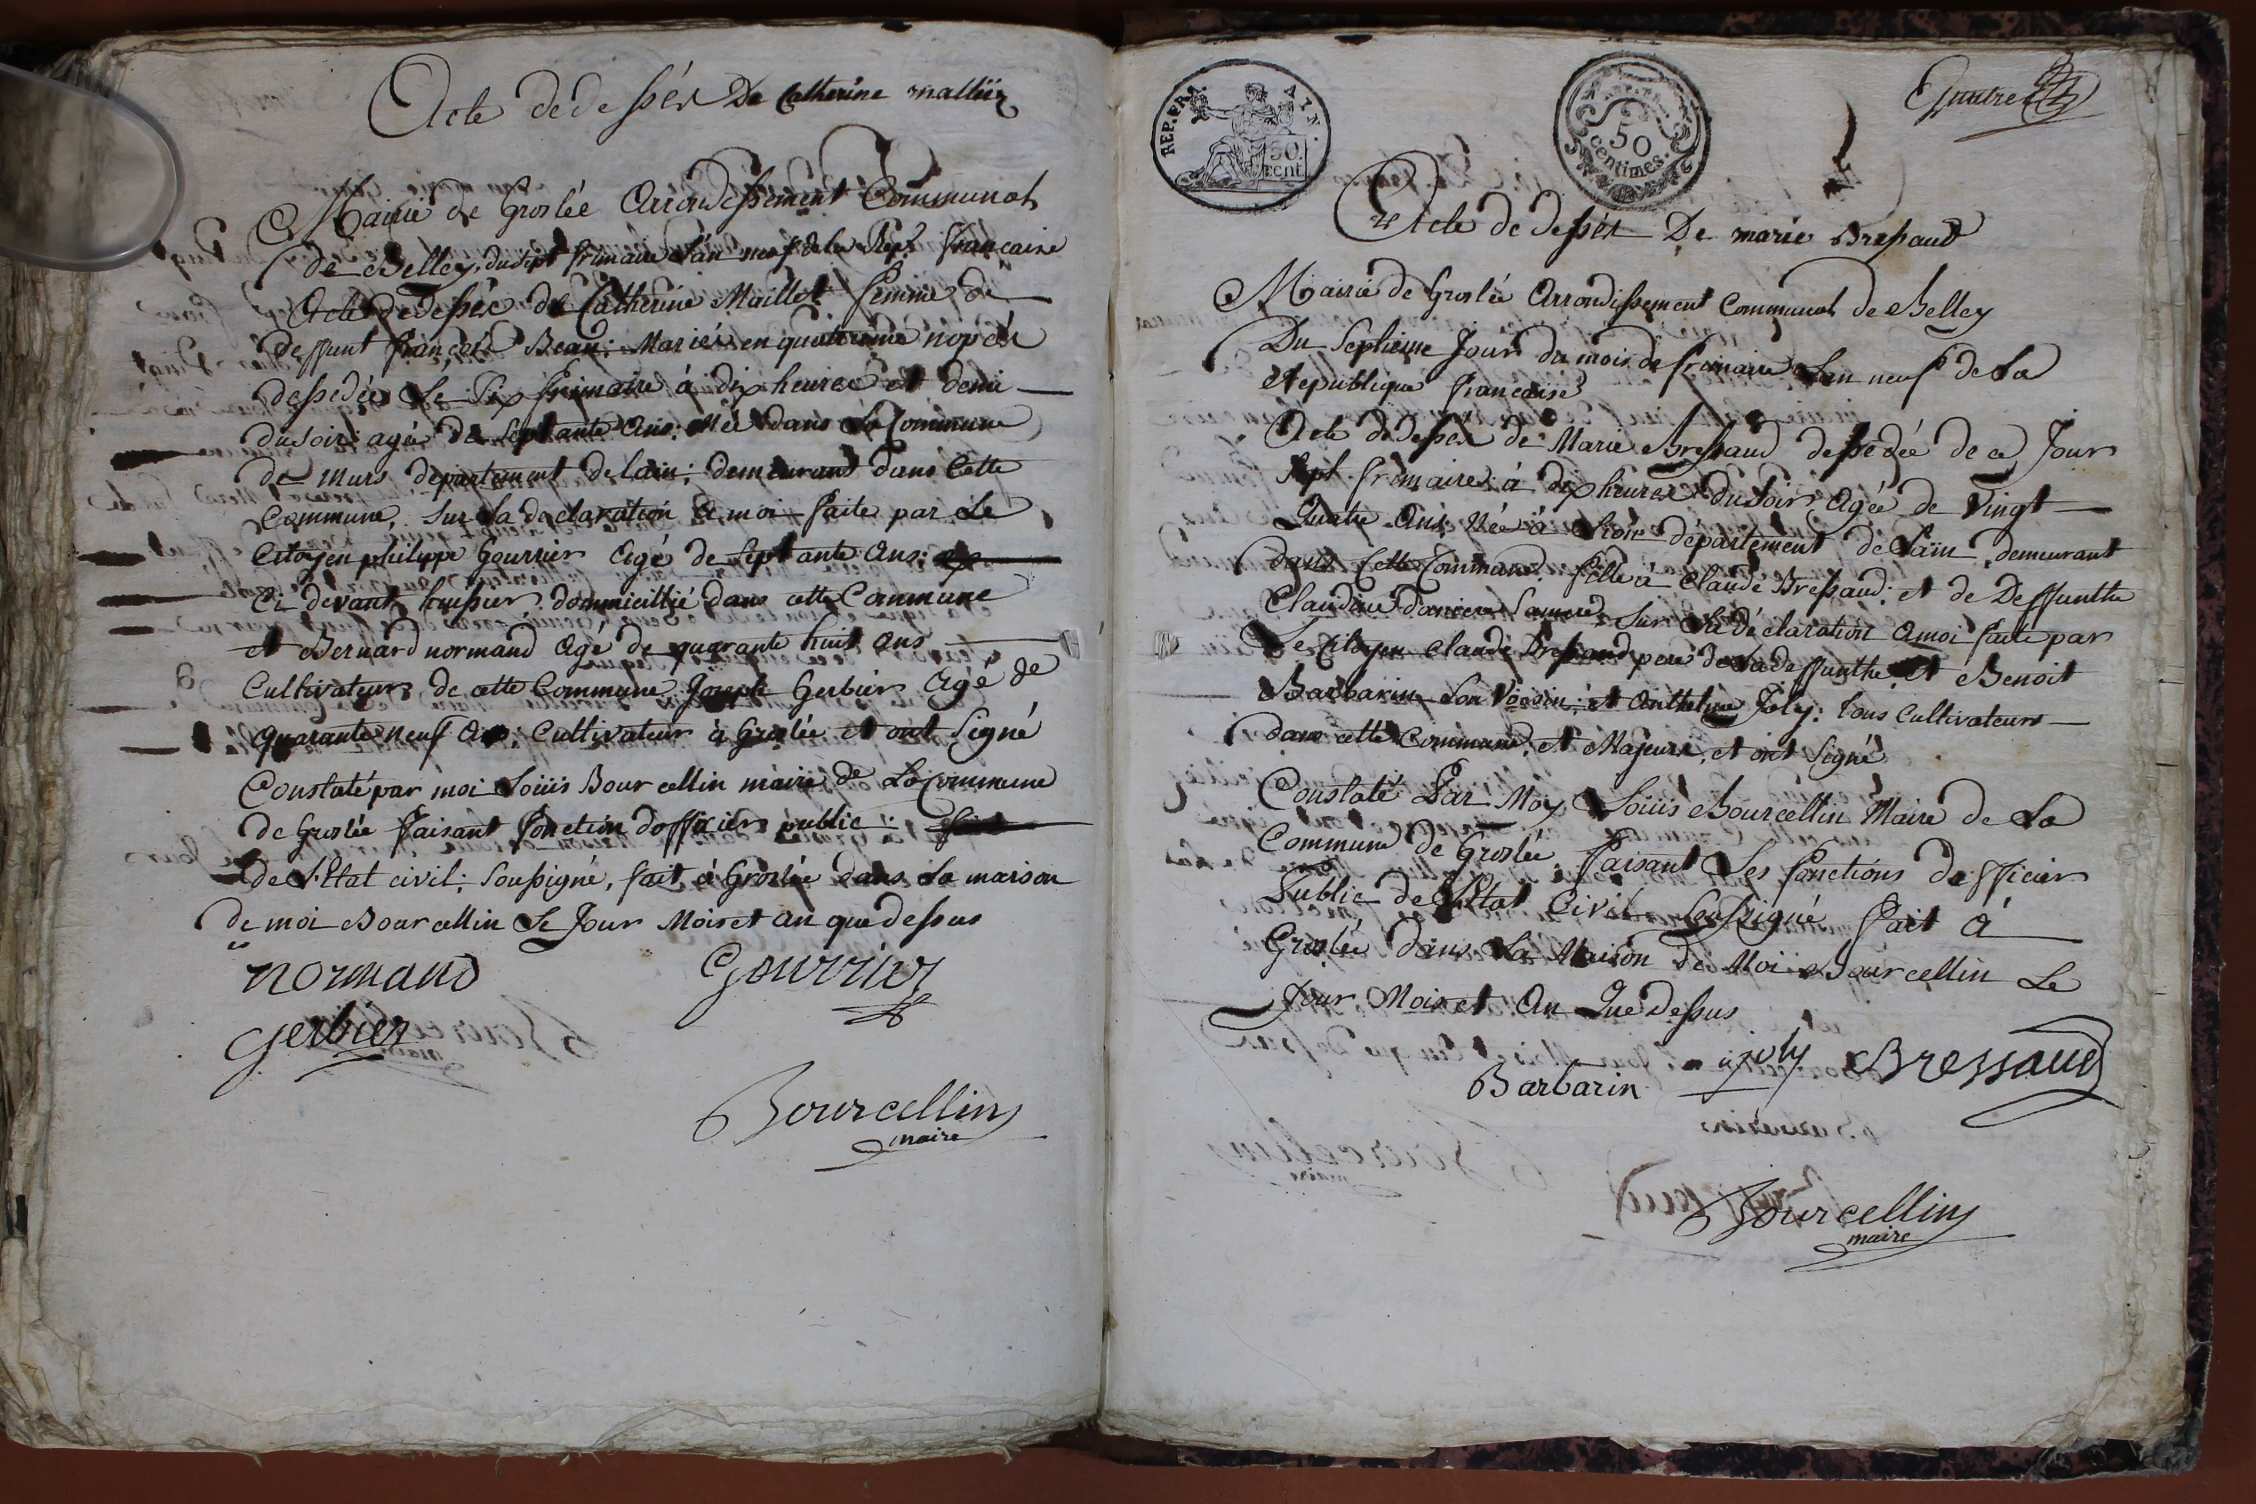 Acte de dessés De Catherine mallier
Mairie de Groslée Arrondissement Communal
de Belley, du sept frimaire L'an neuf de la Rep.e francaise
Acte de dessés de Catherine Maillet femme de
deffunt françois Beau: Mariés en quatrieme nopces
dessedée Le Six frimaire à dix heures et demi
du soir: agée de septante ans: Née dans La Commune
de murs departement de lain; demeurant dans Cette
Commune, sur La declaration a moi faite par Le
Citoyen philippe Gourrier Agé de septante ans:
Ci devant huissier dommicillié dans cette Commune
et Bernard normand Agé de quarante huit ans
Cultivateurs de cette Commune Joseph Gerbier Agé de
quarante neuf ans: Cultivateur à Groslée et ont Signé
Constaté par moi Loüis Bourcellin maire de La Commune
de Groslée faisant fonction dofficier public:
de L'Etat civil; soussigné, fait à Groslée dans La maison
de moi Bourcellin Le Jour Mois et an que dessus
normand Gourrier
Gerbier
Bourcellin
maire
REP. FRA. 50 cent
50 centimes.
Quatre
Acte de dessés De marie Bressaud
Mairie de Groslée Arrondissement Communal de Belley
Du Septieme Jour du mois de frimaire Lan neuf de La
Republique francaise
Acte de dessés de Marie Bressaud dessedée de ce Jour
Sept frimaire à dix heures du soir, Agée de Vingt
Quatre Ans; Née à departement de Lain, demeurant
dans Cette Commune. fille à Claude Bressaud: et de Deffunthe
Claudine Sa mere, sur La déclaration amoi faite par
Le Citoyen Claude Bressaud pere de La deffunthe, et Benoit
Barbarin Son Voisin; et Anthelme Joly: tous Cultivateurs
dans cette Commune, et Majeurs, et ont signé
Constaté Par Moy Loüis Bourcellin Maire de La
Commune de Groslée, faisant Les fonctions dofficier
Public de L'Etat Civil Soussigné fait à
Groslée dans La Maison de Moi Bourcellin Le
Jour Mois et An Que dessus
Barbarin joly Bressaud
Bourcellin
maire